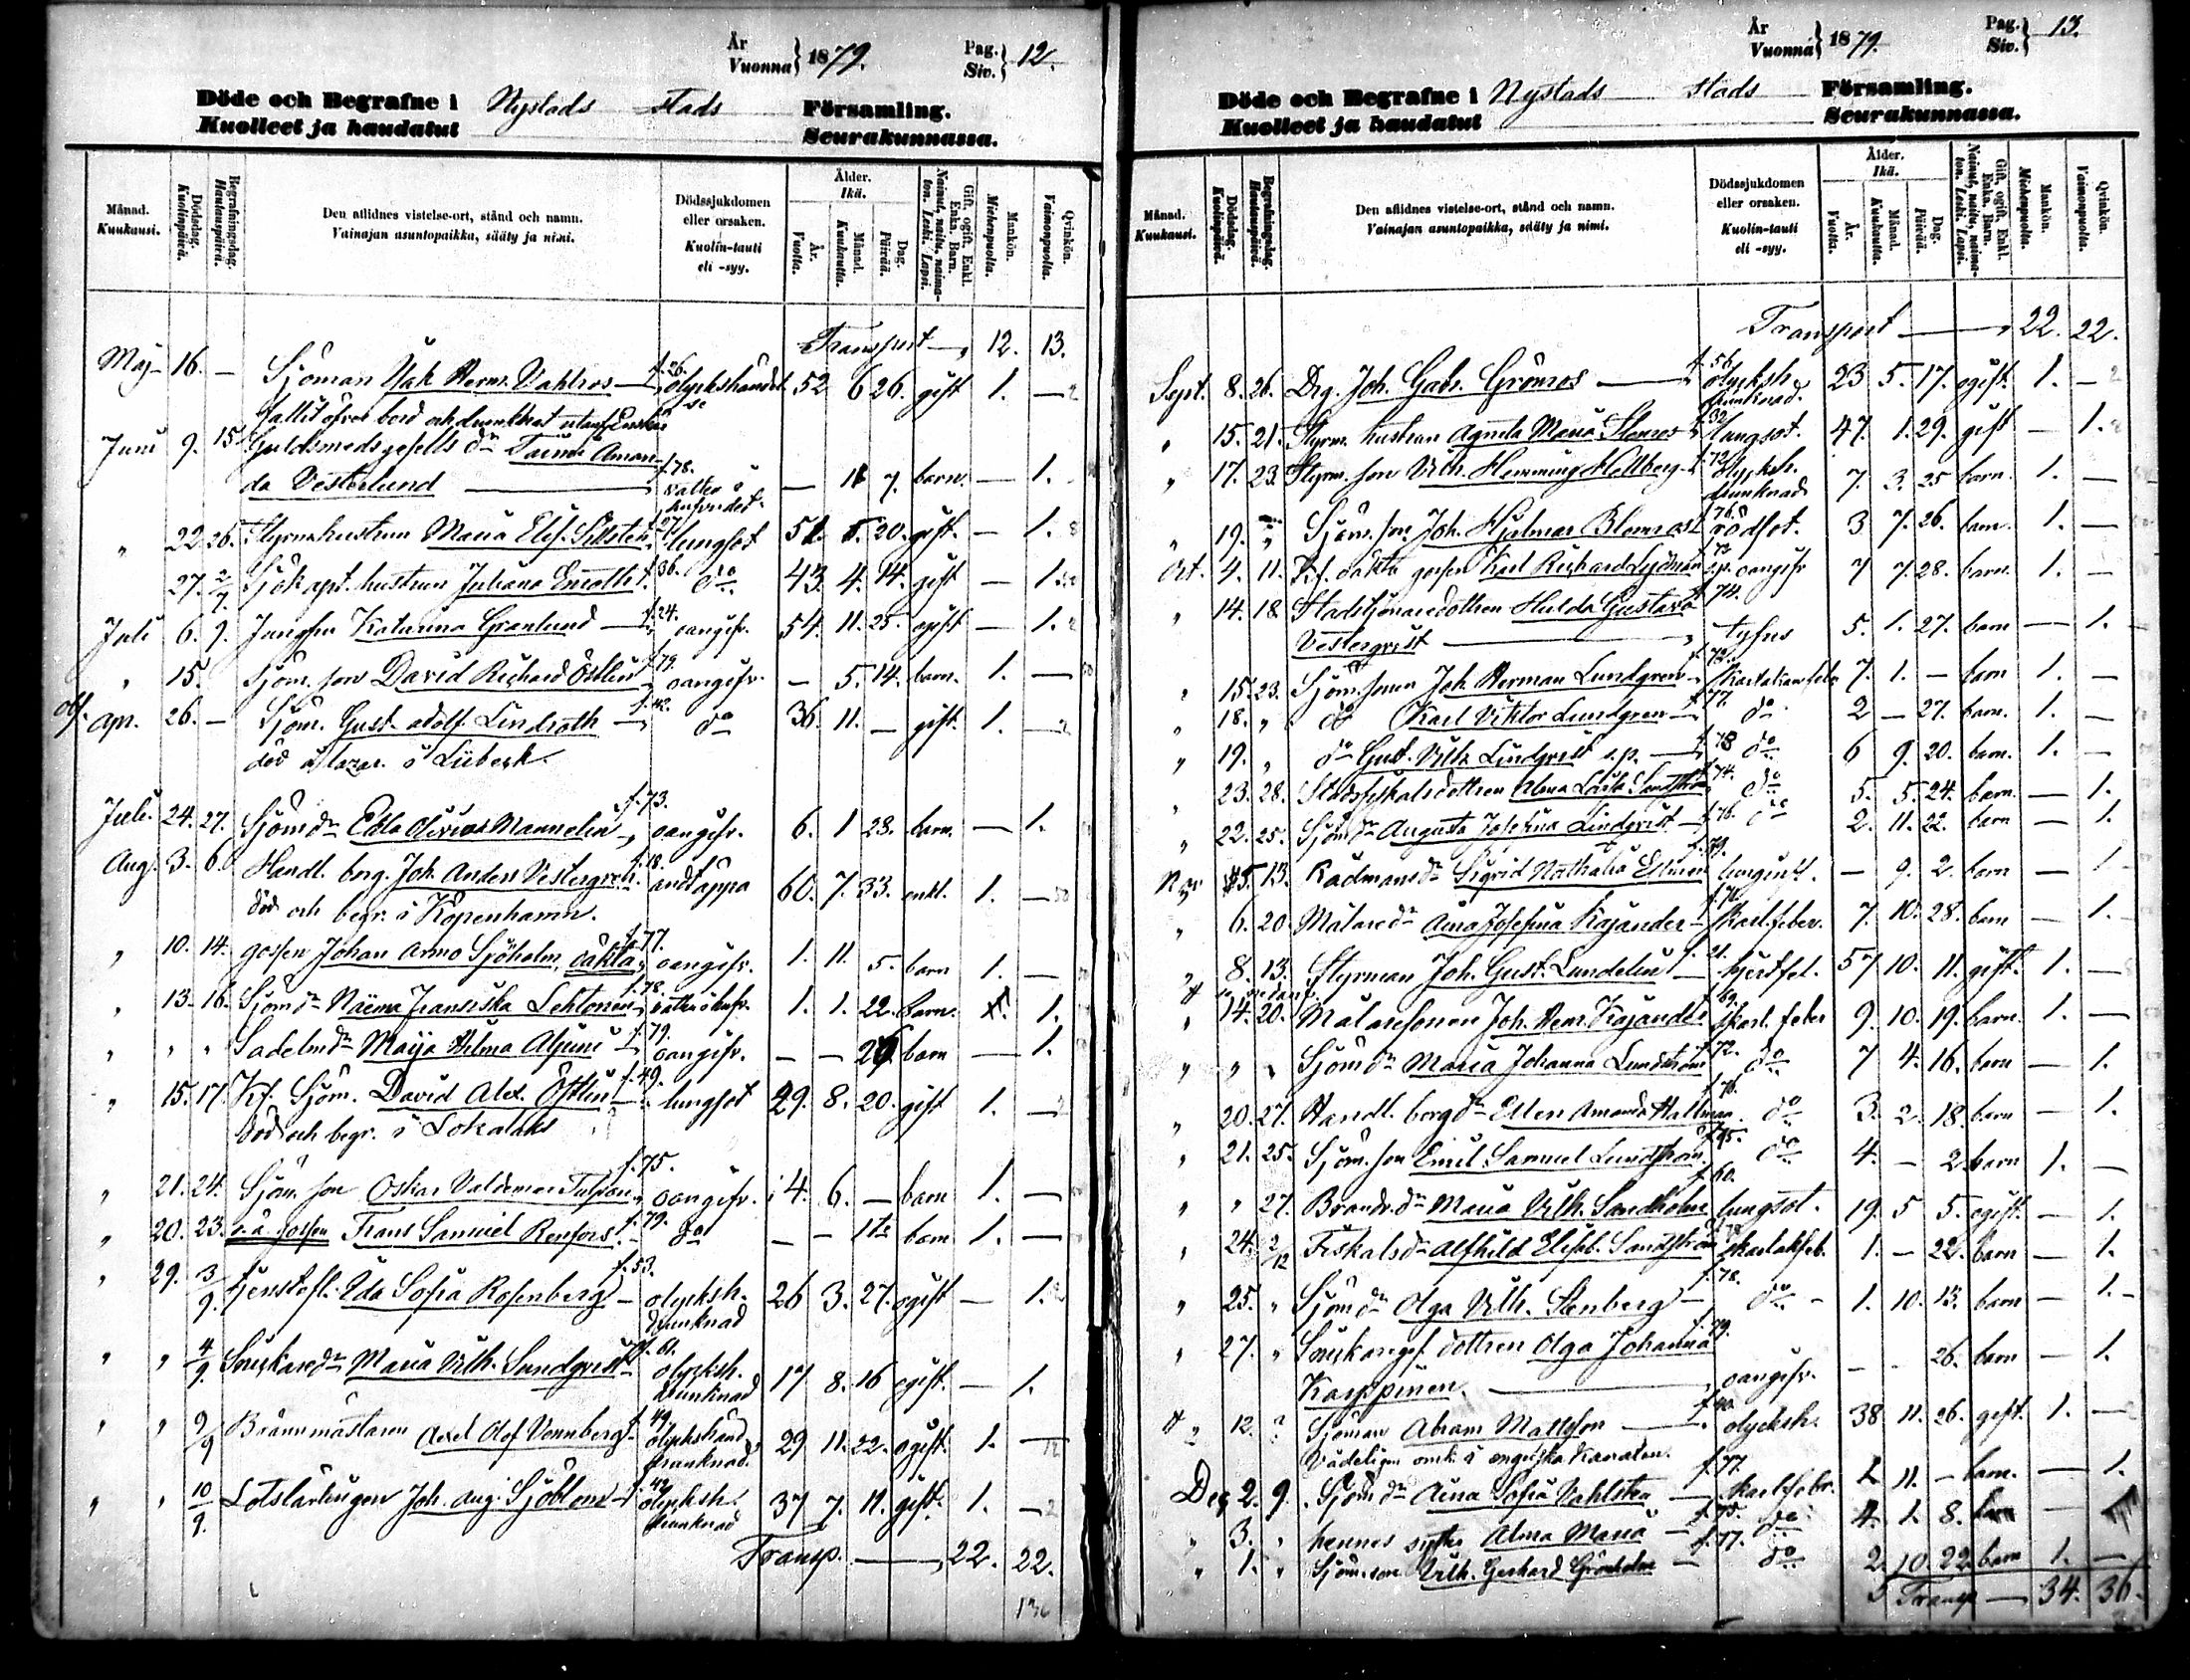 År
Vuonna} 1879. Pag.
Siv.} 12.
Döde och Begrafne i Nystads stads Församling.
Kuolleet ja haudatut Seurakunnassa.
Månad. Kuukausi. Dödsdag. Kuolinpäivä. Begrafningsdag. Hautauspäivä. Den aflidnes vistelse-ort, stånd och namn. Vainajan asuntopaikka, sääty ja nimi. Dödssjukdomen eller orsaken. Kuolin-tauti eli -syy. Ålder. Ikä. År. Vuotta. Månad. Kuukautta. Dag. Päivää. Gift, ogift, Enkl. Enka. Barn. Nainut, naitu, naimaton. Leski. Lapsi. Mankön. Miehenpuolta. Qvinkön. Vaimonpuolta.
Transport — 12. 13.
Maj 16. — Sjöman Isak Herm. Vahlros — f. 26. olyckshändelse 52 6 26. gift 1. —
fallit öfver bord och drunknat
Juni 9. 15. Guldsmedsgesells dr Taimi Aman-
da Vesterlund — f. 78. vatten i hufvudet — 11 7. barn. — 1.
" 22. 26. Styrm. hustrun Maria Elis. Sillsten f. 27. lungsot 51. 5. 20. gift. — 1.
27. 2/7. Sjökapt. hustrun Juliana Enroth f. 36. do 43. 4. 14. gift — 1.
Juli 6. 9. Jungfru Katarina Granlund — f. 24. oangifv. 54. 11. 25. ogift — 1.
" 15. Sjöm. son David Richard Östlin f. 79. oangifv. — 5. 14. barn. 1. —
obs. Apr. 26. — Sjöm. Gust. Adolf Lindroth — f. 42. do 36. 11. — gift. 1. —
död å lazar. i Lübeck.
Juli. 24. 27. Sjöm dr Edla Olivia Mannelin — f. 73. oangifv. 6. 1 23. barn. — 1.
Aug. 3. 6. Handl. borg. Joh. Anders Vestergren f. 18. andtäppa 60. 7. 33. enkl. 1. —
död och begr. i Köpenhamn.
" 10. 14. gossen Johan Arno Sjöholm, oäkta f. 77. oangifv. 1. 11. 5. barn 1. —
" 13. 16. Sjöm dr Naëma Fransiska Lehtonen f. 78. vatten i hufv. 1. 1. 22. barn. 1.
" " " Sadelm dr Maija Hilma Aljuni — f. 79. oangifv. — — 26 barn — 1.
" 15. 17. Kf. Sjöm. David Alex. Östlin f. 49. lungsot 29. 8. 20. gift 1. —
död och begr. i Lokalaks
" 21. 24. Sjöm. son Oskar Valdemar Tulpan f. 75. oangifv. 4. 6. — barn 1. —
" 20. 23. o. ä. gossen Frans Samuel Renfors f. 79. do — — 1 ti barn 1. —
" 29. 3/9. tjenstefl. Ida Sofia Rosenberg — f. 53. olycksh. drunknad 26 3. 27. ogift — 1.
" " 4/9. Snickare dr Maria Vilh. Sundqvist f. 61. olycksh. drunknad 17 8. 16 ogift. — 1.
" " 9/9 Brännmästaren Axel Olof Vennberg f. 49. olyckshänd. drunknad 29 11. 22. ogift. 1. —
" " 10/9. Lotslärlingen Joh. Aug. Sjöblom f. 42. olycksh. drunknad 37 7. 11. gift. 1. —
Transp. — 22. 22.
136
År
Vuonna} 1879. Pag.
Siv.} 13.
Döde och Begrafne i Nystads stads Församling.
Kuolleet ja haudatut Seurakunnassa.
Månad. Kuukausi. Dödsdag. Kuolinpäivä. Begrafningsdag. Hautauspäivä. Den aflidnes vistelse-ort, stånd och namn. Vainajan asuntopaikka, sääty ja nimi. Dödssjukdomen eller orsaken. Kuolin-tauti eli -syy. Ålder. Ikä. År. Vuotta. Månad. Kuukautta. Dag. Päivää. Gift, ogift, Enkl. Enka. Barn. Nainut, naitu, naimaton. Leski. Lapsi. Mankön. Miehenpuolta. Qvinkön. Vaimonpuolta.
Transport — 22. 22.
Sept. 8. 26. Drg. Joh. Gabr. Grönros — f. 56. olycksh. drunknad. 23 5. 17. ogift. 1. —
" 15. 21. Styrm. hustrun Agneta Maria Blomros f. 32. lungsot. 47. 1. 29. gift — 1.
" 17. 23. Styrm. son Vilh. Hemming Hellberg f. 72. olycksh. drunknad 7. 3. 25 barn. 1. —
" 19. " Sjöm. son Joh. Hjalmar Blomros f. 76. rödsot. 3 7. 26. barn. 1. —
Oct. 4. 11. Kf. oäkta gossen Karl Richard Sjöman f. 72. oangifv 7 7. 28. barn. 1. —
" 14. 18. Stadstjenaredottren Hulda Gustava f. 74.
Vesterqvist — tyfus 5. 1. 27. barn — 1.
" 15. 23. Sjöm. sonen Joh. Herman Lundgren f. 72. skarlakansfeb. 7. 1. — barn 1. —
" 18. " do Karl Viktor Lundgren — f. 77. do 2 — 27. barn. 1. —
" 19. " do Gust. Vilh. Lindqvist — f. 73 do 6 9. 20. barn. 1. —
" 23. 28. Stadsfiskalsdottren Alma Lovisa Sandström f. 74. do 5. 5. 24. barn — 1.
" 22. 25. Sjöm dr Augusta Josefina Lindqvist f. 76. do 2. 11. 22. barn — 1.
Nov 5. 13. Rådmans dr Sigrid Nathalia Elmen f. 79. lunginfl. — 9. 2. barn — 1.
" 6. 20 Målare dr Aina Josefina Kajander f. 72. skarl. feber. 7. 10. 28. barn — 1.
" 8. 13. Styrman Joh. Gust. Lundelin f. 21. hjertfel. 57 10. 11. gift. 1. —
" 14. 20. Målaresonen Joh. Herm. Kajander f. 69. skarl. feber 9. 10. 19. barn. 1. —
" " " Sjöm dr Maria Johanna Lundström f. 72. do 7 4. 16. barn — 1.
" 20. 27. Handl. borg dr Ellen Amanda Hallman f. 76. do 3. 2. 18. barn — 1.
" 21. 25. Sjöm. son Emil Samuel Lundström f. 75. do 4. — 2 barn 1. —
" " 27. Brandv. dr Maria Vilh. Sandholm f. 60. lungsot. 19. 5 5. ogift. — 1.
" 24. 2/12 Fiskals dr Alfhild Elisab. Sandström f. 78 skarlakfeb. 1. — 22. barn — 1.
" 25. " Sjöm dr Olga Vilh. Stenberg — f. 78. do 1. 10. 13. barn — 1.
" 27. " Snickaregs. dottren Olga Johanna f. 79.
Karppinen. — oangifv. — — 26. barn — 1.
" 12. ? Sjöman Abram Mattsson — f. 40. olycksh. 38 11. 26. gift. 1. —
Vådeligen omk. i engelska Kanalen.
Dec 2. 9. Sjöm dr Aina Sofia Vahlsten f. 77. skarlfebr. 2 11. — barn. — 1.
" 3. " hennes syster Alma Maria — f. 75. do 4. 1. 8. —
" 1. " Sjöm. son Vilh. Gerhard Grönholm — f. 77. do 2. 10. 22 barn 1. —
Transp — 34. 36.